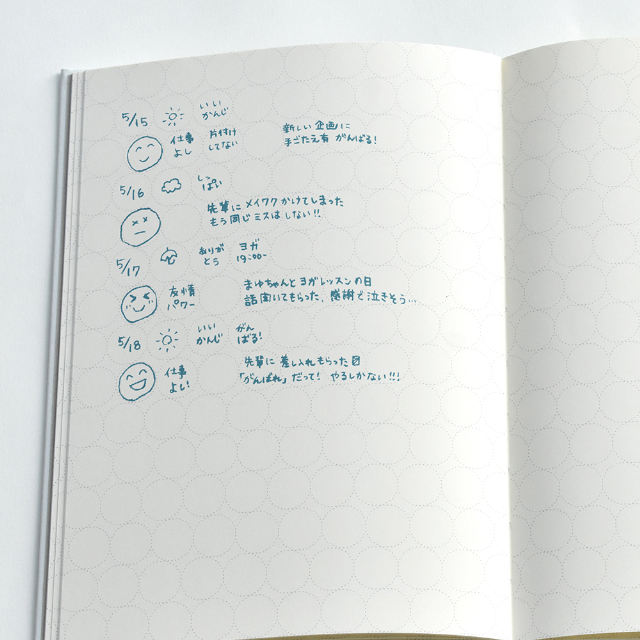 5/15
いい
かんじ
仕事
よし
片付け
してない
新しい企画に
手ごたえ有 がんばる!
5/16
しっ
ぱい
先輩にメイワクかけてしまった
もう同じミスはしない!!
5/17
ありが
とう
ヨガ
19:00~
友情
パワー
まゆちゃんとヨガレッスンの日
話聞いてもらった、感謝で泣きそう...
5/18
いい
かんじ
がん
ばる!
仕事
よし!
先輩に差し入れもらった
「がんばれ」だって! やるしかない!!!